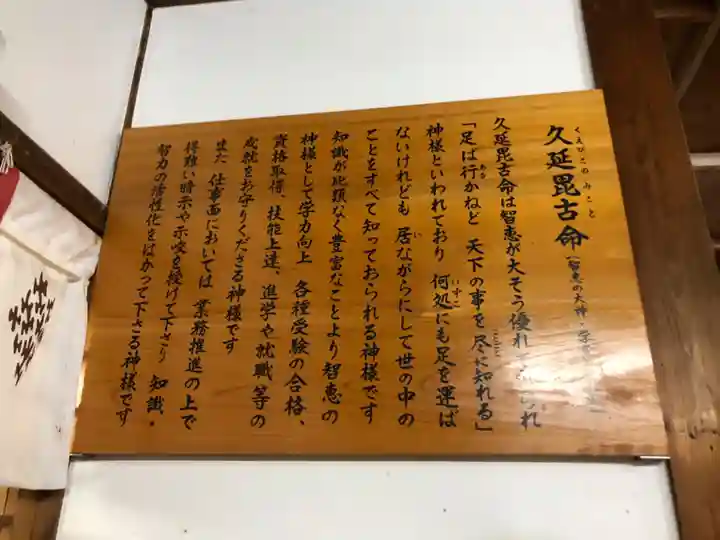 くえびこのみこと
久延毘古命
(智恵の大神・学
久延毘古命は智恵が大そう優れておられ
ある
「足は行かねど 天下の事を 尽に知れる」
ことごとく
神様といわれており 何処にも足を運ば
いずこ
ないけれども 居ながらにして世の中の
い
ことをすべて知っておられる神様です
知識が比類なく豊富なことより智恵の
神様として学力向上 各種受験の合格、
資格取得、技能上達、進学や就職等の
成就をお守りくださる神様です
また 仕事面においては 業務推進の上で
得難い暗示や示唆を授けて下さり 知識・
智力の活性化をはかって下さる神様です